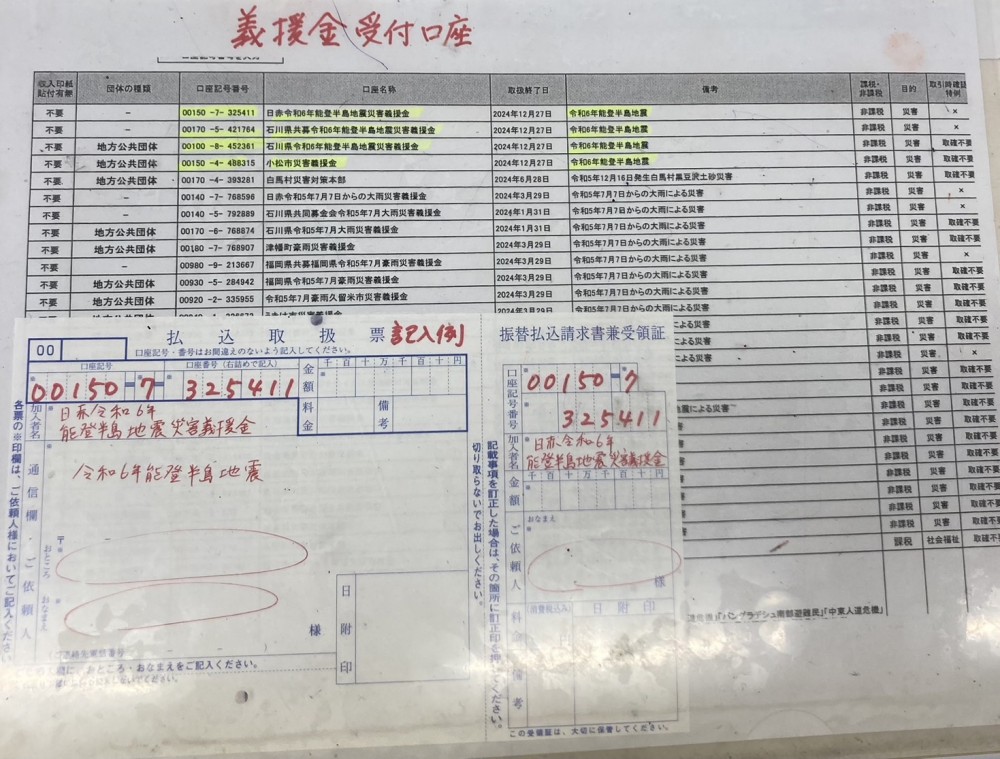 義援金受付口座
収入印紙貼付有無 団体の種類 口座記号番号 口座名称 取扱終了日 備考 課税・非課税 目的 取引時確認特例
不要 － 00150 -7- 325411 日赤令和6年能登半島地震災害義援金 2024年12月27日 令和6年能登半島地震 非課税 災害 ×
不要 － 00170 -5- 421764 石川県共募令和6年能登半島地震災害義援金 2024年12月27日 令和6年能登半島地震 非課税 災害 ×
不要 地方公共団体 00100 -8- 452361 石川県令和6年能登半島地震災害義援金 2024年12月27日 令和6年能登半島地震 非課税 災害 取確不要
不要 地方公共団体 00150 -4- 488315 小松市災害義援金 2024年12月27日 令和6年能登半島地震 非課税 災害 取確不要
不要 地方公共団体 00170 -4- 393281 白馬村災害対策本部 2024年6月28日 令和5年12月16日発生白馬村黒豆沢土砂災害 非課税 災害 取確不要
不要 － 00140 -7- 768596 日赤令和5年7月7日からの大雨災害義援金 2024年3月29日 令和5年7月7日からの大雨による災害 非課税 災害 ×
不要 － 00140 -5- 792889 石川県共同募金会令和5年7月大雨災害義援金 2024年1月31日 令和5年7月7日からの大雨による災害 非課税 災害 ×
不要 地方公共団体 00170 -6- 768874 石川県令和5年7月大雨災害義援金 2024年1月31日 令和5年7月7日からの大雨による災害 非課税 災害 取確不要
不要 地方公共団体 00180 -7- 768907 津幡町豪雨災害義援金 2024年3月29日 令和5年7月7日からの大雨による災害 非課税 災害 取確不要
不要 － 00980 -9- 213667 福岡県共募福岡県令和5年7月豪雨災害義援金 2024年3月29日 令和5年7月7日からの大雨による災害 非課税 災害 ×
不要 地方公共団体 00930 -5- 284942 福岡県令和5年7月豪雨災害義援金 2024年3月29日 令和5年7月7日からの大雨による災害 非課税 災害 取確不要
不要 地方公共団体 00920 -2- 335955 令和5年7月豪雨久留米市災害義援金 2024年3月29日 令和5年7月7日からの大雨による災害 非課税 災害 取確不要
払込取扱票 記入例
00
口座記号・番号はお間違えのないよう記入してください。
口座記号 口座番号（右詰めで記入） 金額 千百十万千百十円
00150-7- 325411
料金 備考
加入者名 日赤令和6年
能登半島地震災害義援金
通信欄・ご依頼人
令和6年能登半島地震
〒
おところ
おなまえ
様
日附印
各票の※印欄は、ご依頼人様においてご記入ください。
切り取らないでお出しください。
記載事項を訂正した場合は、その箇所に訂正印を押してください。
振替払込請求書兼受領証
口座記号番号 00150-7
325411
加入者名 日赤令和6年
能登半島地震災害義援金
金額 千百十万千百十円
ご依頼人 おなまえ
様
料金 (消費税込み) 日附印
備考
この受領証は、大切に保管してください。
課税 社会福祉 取確不要
「バングラデシュ南部避難民」「中東人道危機」